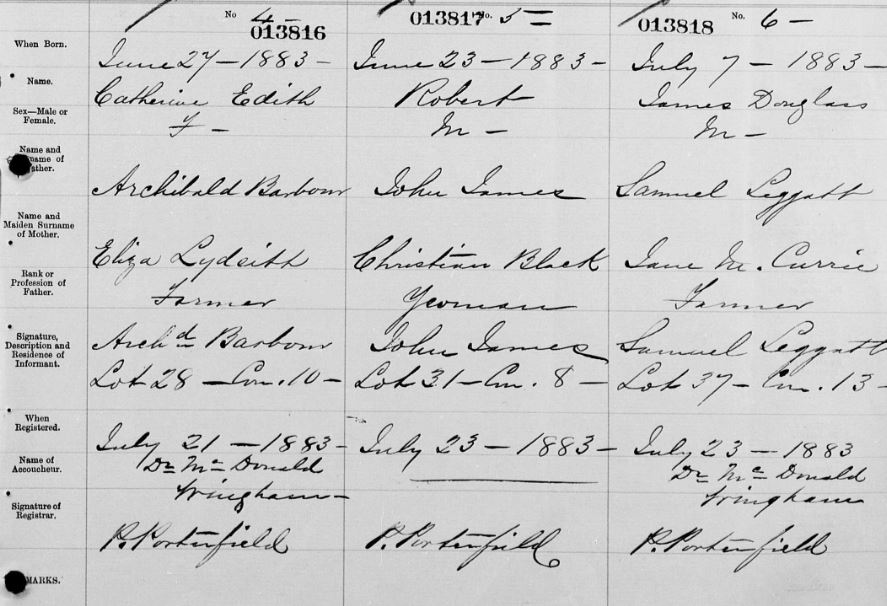 No 4 — No. 5 = No. 6 —
013816 013817 013818
When Born. June 27 — 1883 — June 23 — 1883 — July 7 — 1883 —
Name. Catherine Edith Robert James Douglass
Sex—Male or Female. F — M — M —
Name and
name of
ather. Archibald Barbour John James Samuel Leggatt
Name and
Maiden Surname
of Mother. Eliza Christian Black Jane M. Currie
Rank or
Profession of
Father. Farmer Yeoman Farmer
Signature,
Description and
Residence of
Informant. Archd Barbour John James Samuel Leggatt
Lot 28 — Con. 10 — Lot 31 — Con. 8 — Lot 37 — Con. 13 —
When
Registered. July 21 — 1883 — July 23 — 1883 — July 23 — 1883
Name of
Accoucheur. Dr Mc Donald Dr Mc Donald
Wingham — Wingham
Signature of
Registrar. P. Porterfield P. Porterfield P. Porterfield
MARKS.